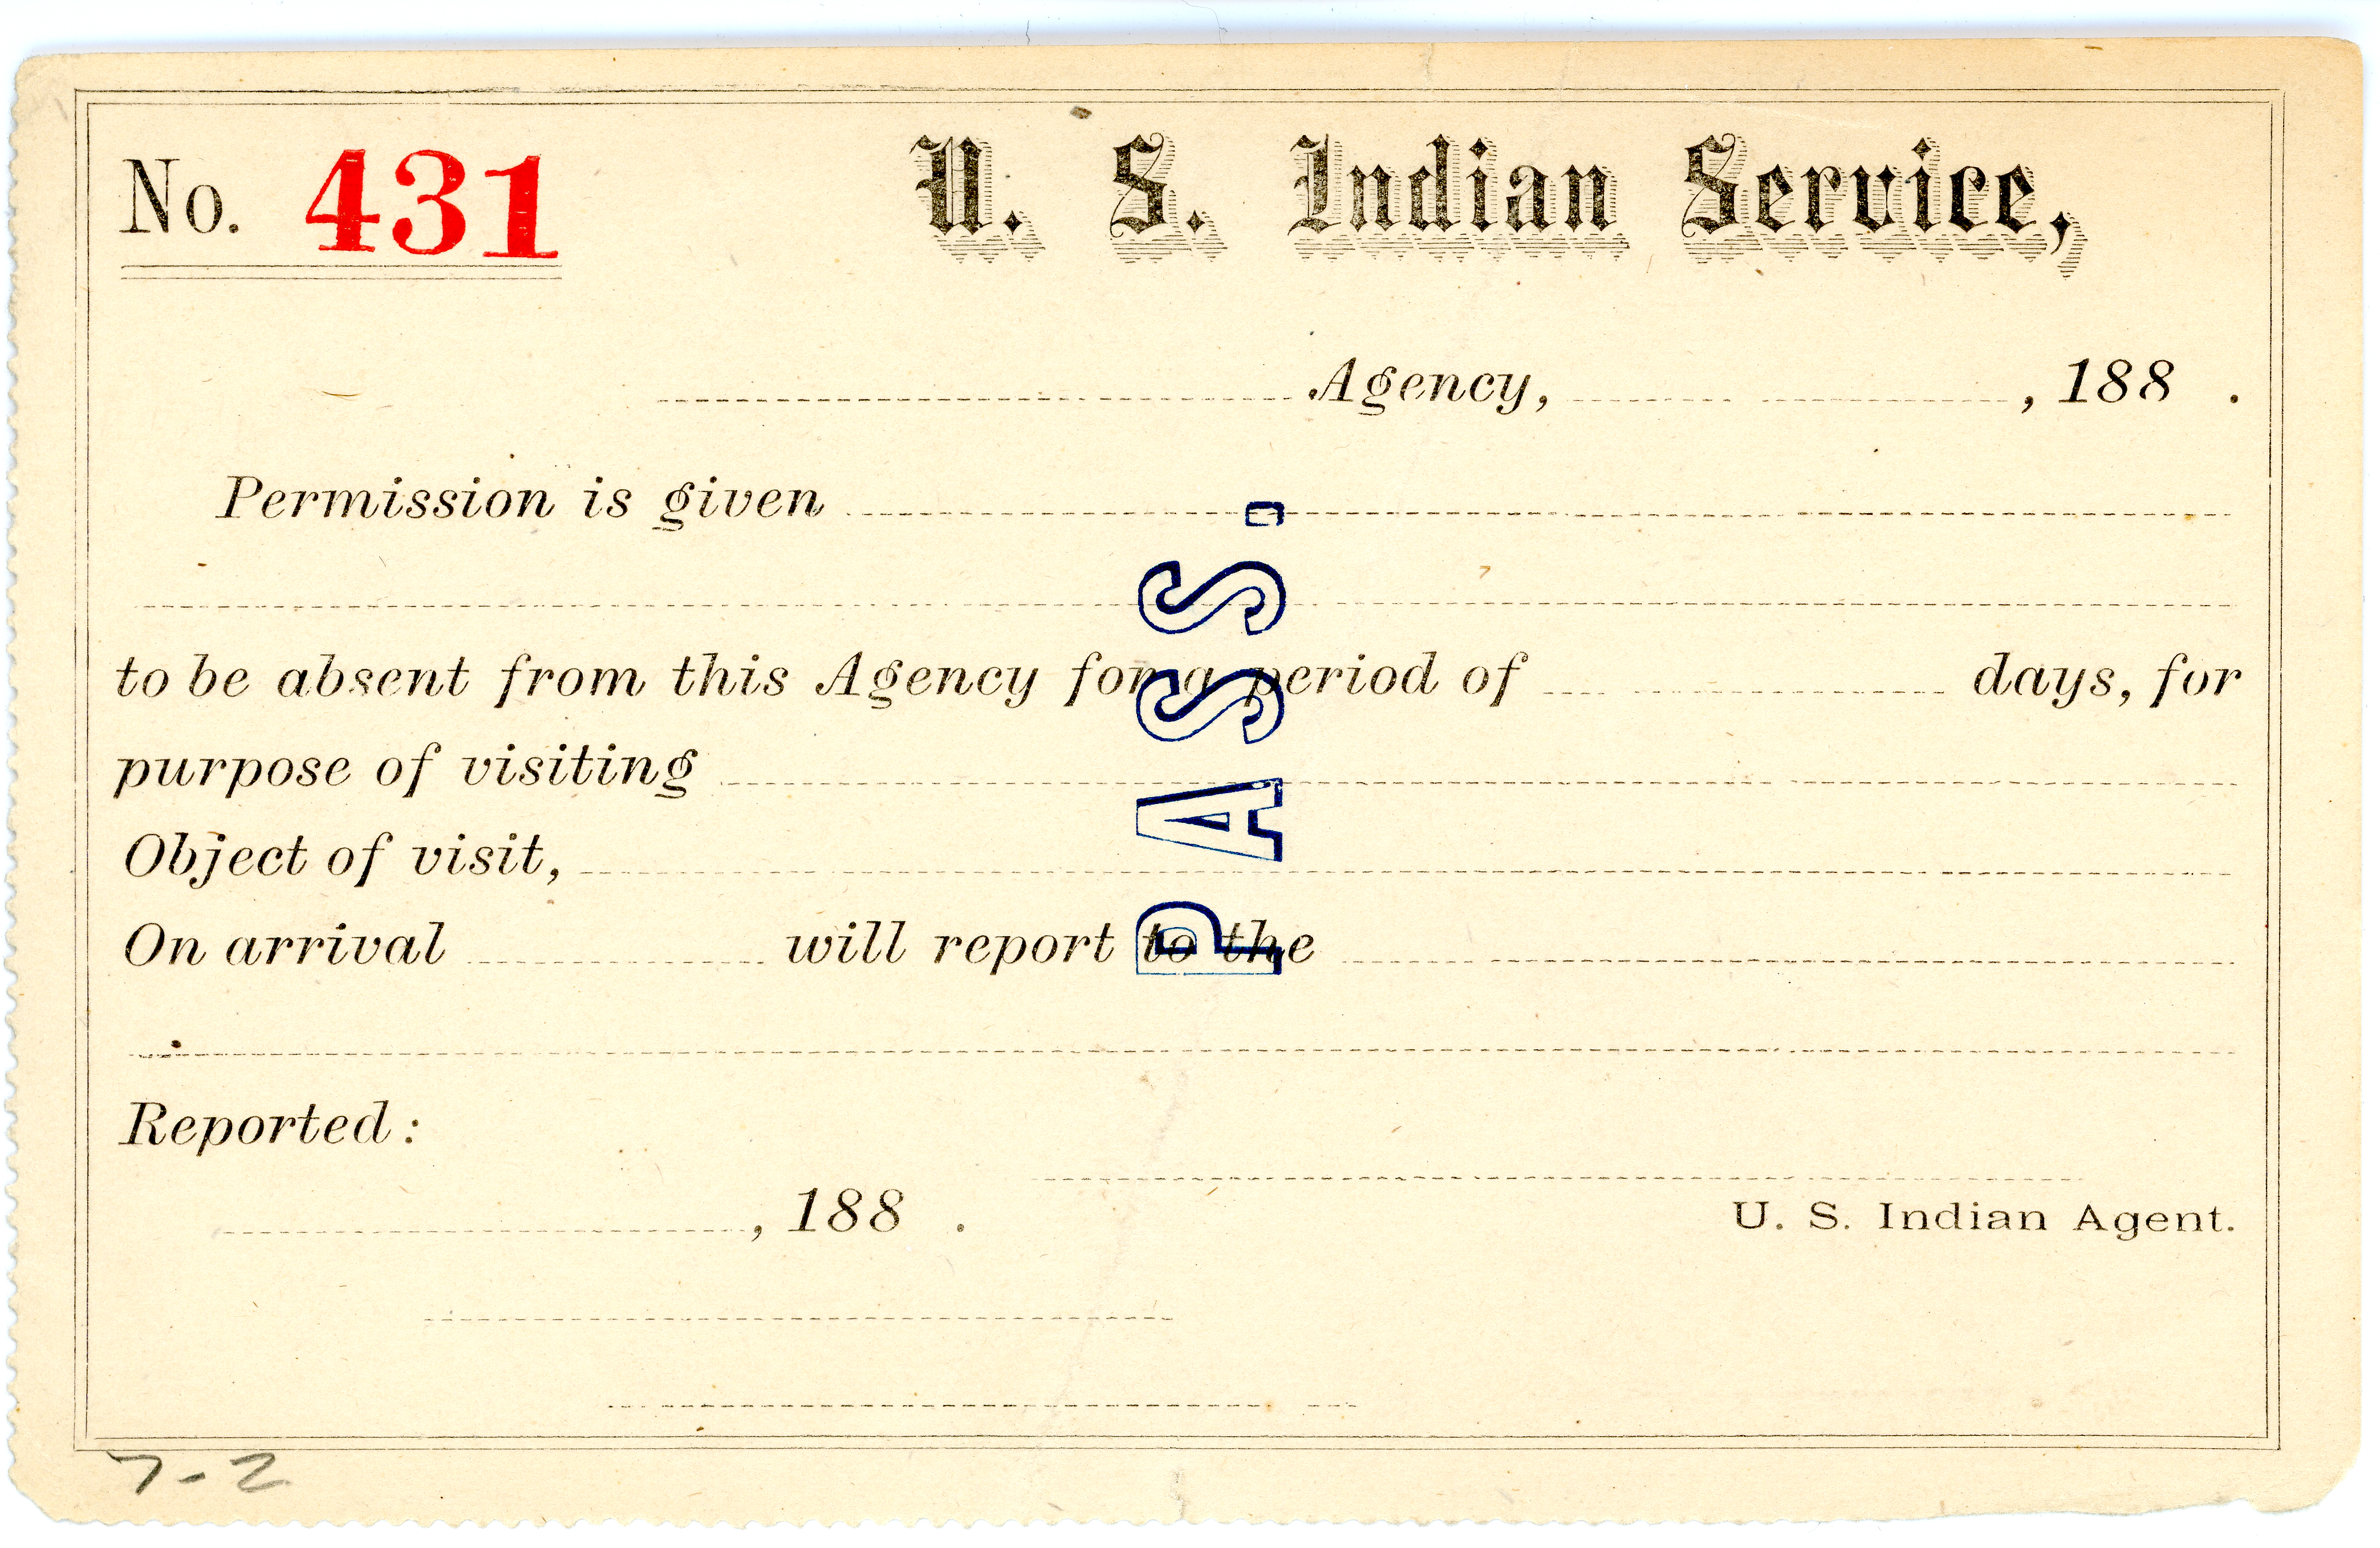 No. 431
U. S. Indian Service,
Agency, , 188 .
Permission is given
to be absent from this Agency for a period of days, for
purpose of visiting
Object of visit,
On arrival will report to the
Reported:
, 188 .
U. S. Indian Agent.
PASS.
7-2